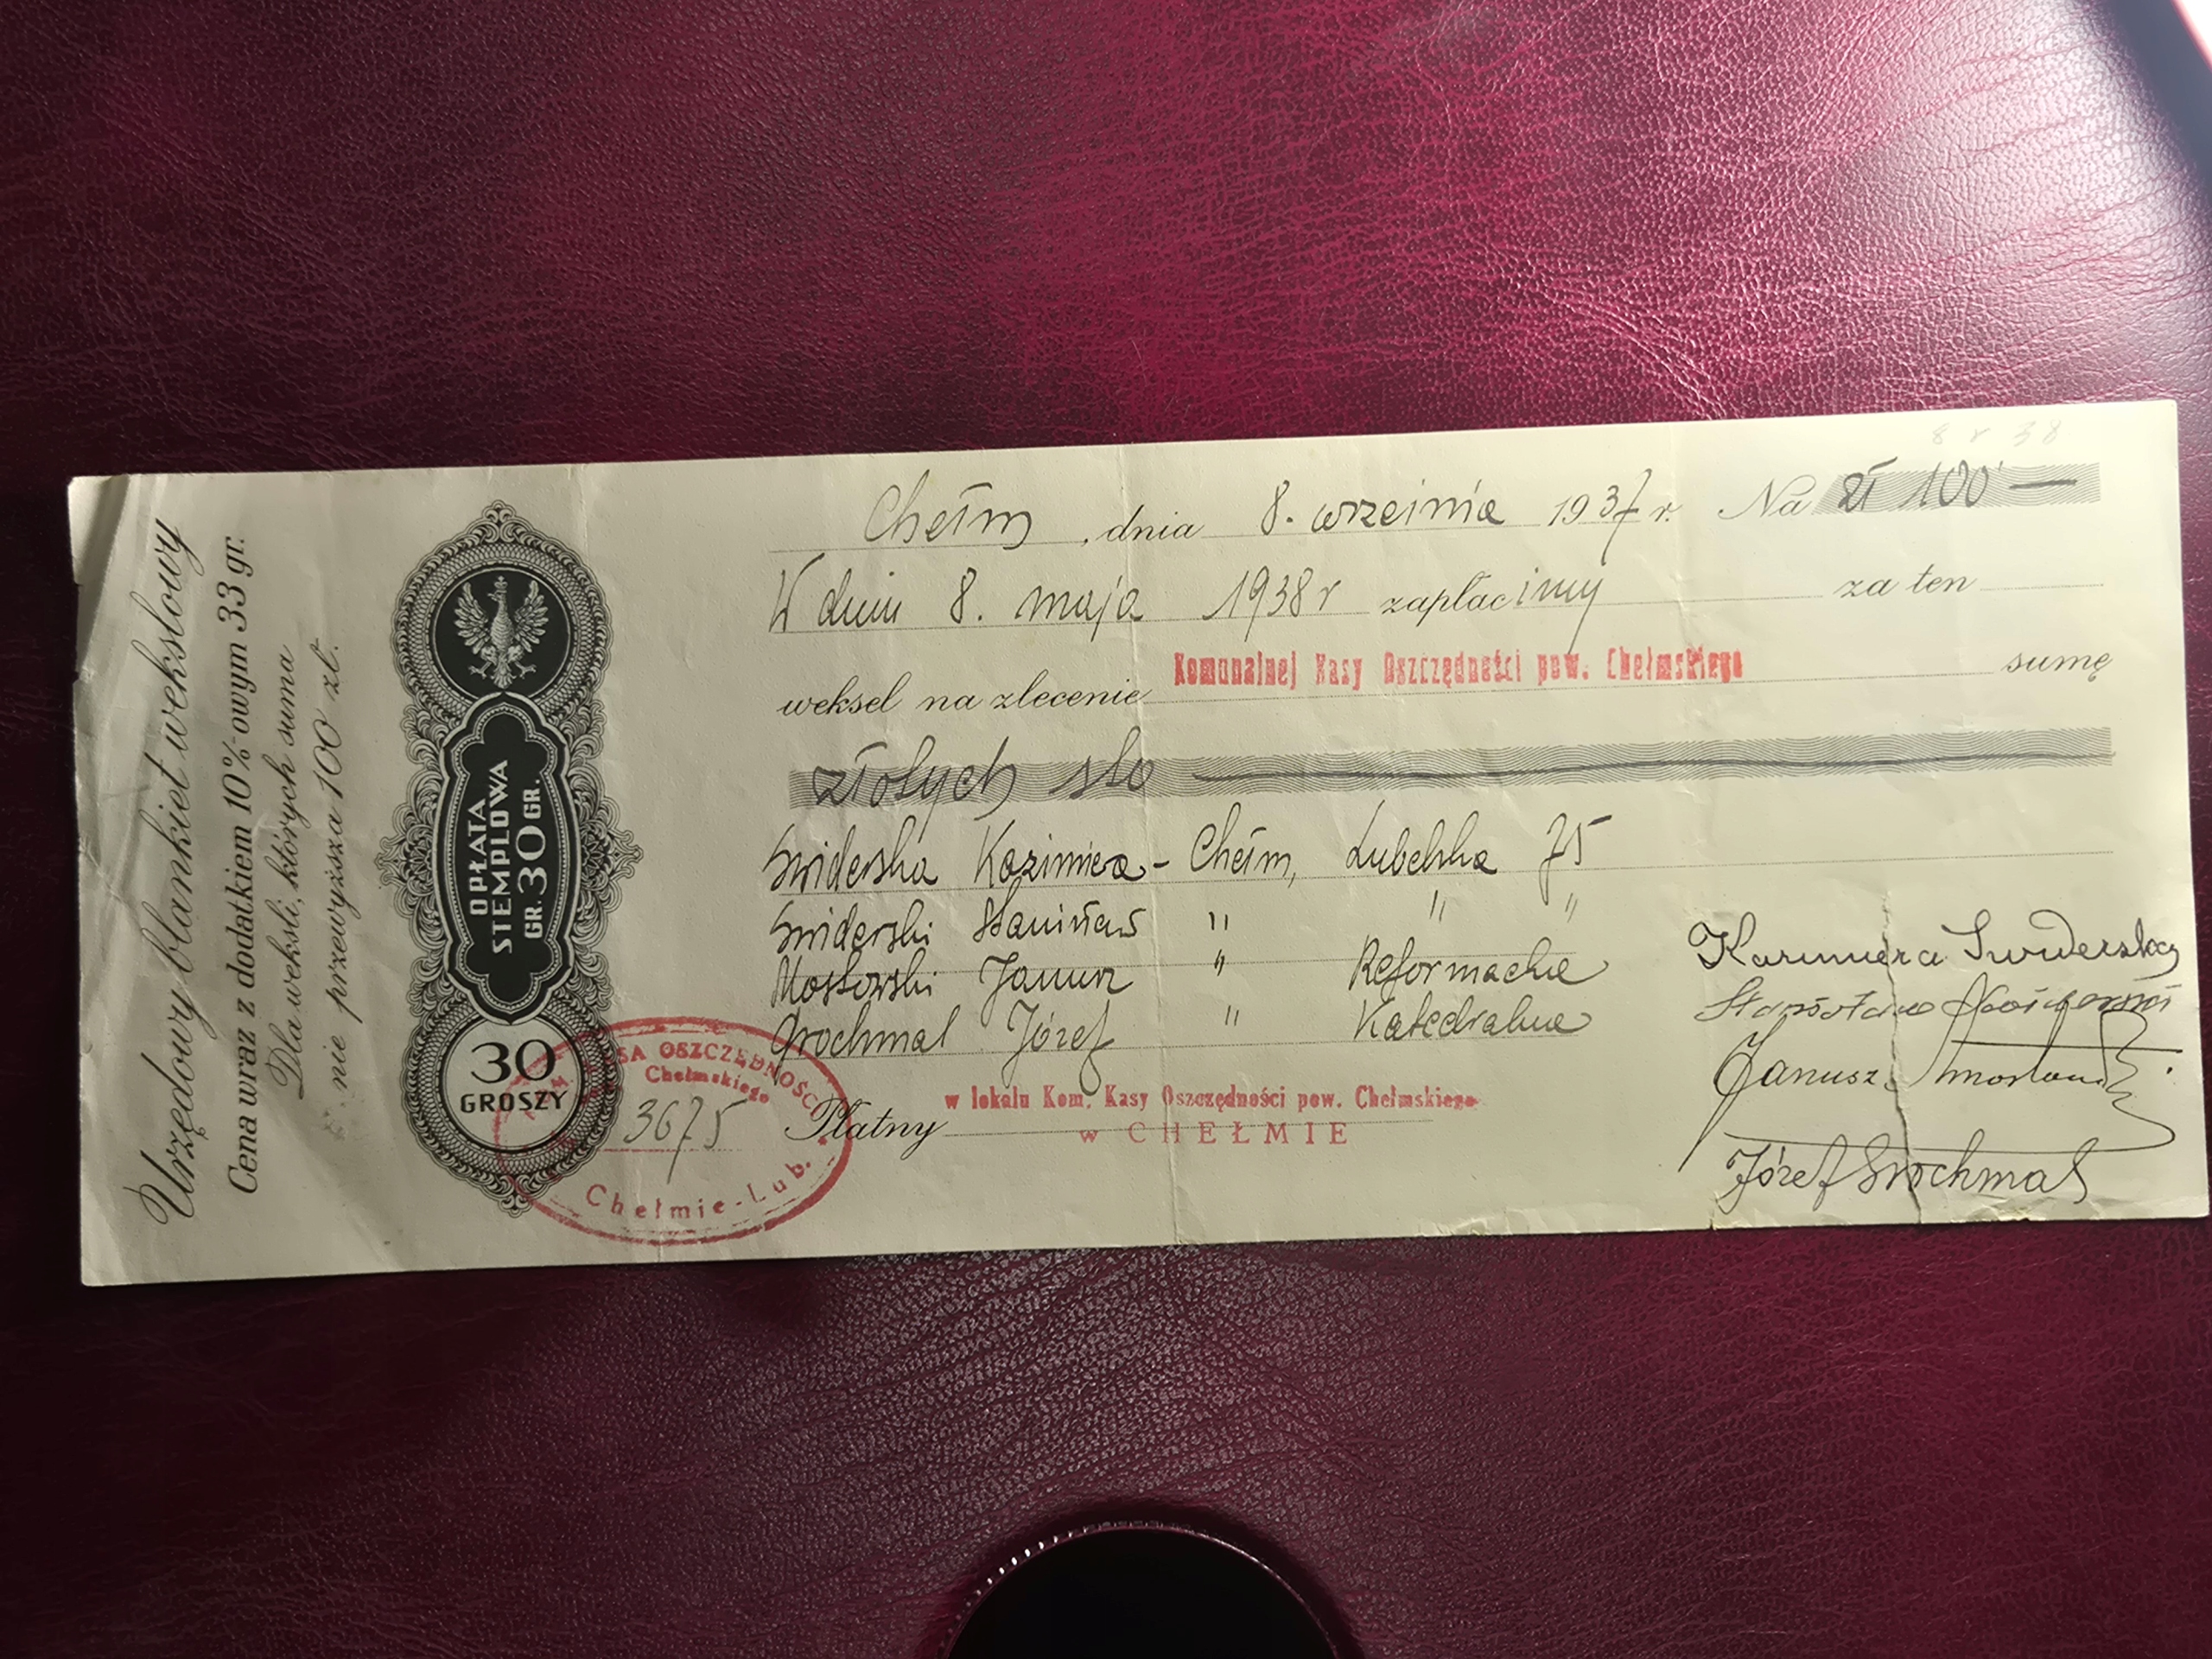 Urzędowy blankiet wekslowy
Cena wraz z dodatkiem 10%-owym 33 gr.
Dla weksli, których suma
nie przewyższa 100 zł.
OPŁATA
STEMPLOWA
GR. 30 GR.
30
GROSZY
KASA OSZCZĘDNOŚCI
Chełmskiego
3675
Chełmie-Lub.
8 V 38
Chełm, dnia 8. września 1937 r. Na zł 100 —
W dniu 8. maja 1938 r zapłacimy za ten
weksel na zlecenie Komunalnej Kasy Oszczędności pow. Chełmskiego sumę
złotych sto —
Świderska Kazimiera - Chełm, Lubelska 75
Świderski Stanisław " " "
Mostowski Janusz " Reformacka
Grochmal Józef " Katedralna
Płatny w lokalu Kom. Kasy Oszczędności pow. Chełmskiego
w CHEŁMIE
Kazimiera Świderska
Stanisław Świderski
Janusz
Józef Grochmal